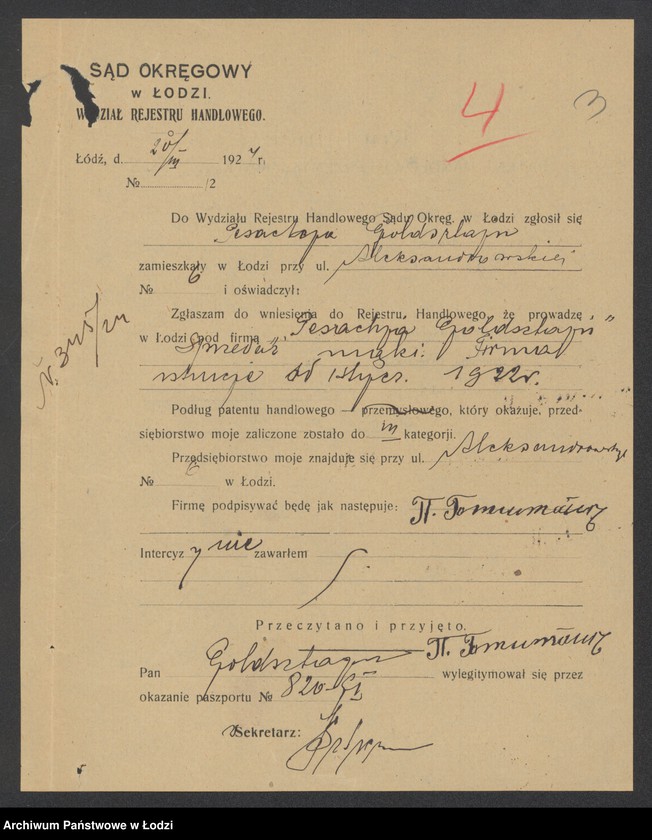 SĄD OKRĘGOWY
w ŁODZI.
WYDZIAŁ REJESTRU HANDLOWEGO.
4
3
Łódź, d. 20/III 1924 r.
№ /2
Do Wydziału Rejestru Handlowego Sądu Okręg. w Łodzi zgłosił się
Pesachja Goldsztajn
zamieszkały w Łodzi przy ul. Aleksandrowskiej
№ 6 i oświadczył:
Zgłaszam do wniesienia do Rejestru Handlowego, że prowadzę
w Łodzi pod firmą „Pesachja Goldsztajn”
Sprzedaż mąki. Firma
istnieje od 1 stycz. 1922 r.
Podług patentu handlowego — przemysłowego, który okazuje, przed-
siębiorstwo moje zaliczone zostało do III kategorji.
Przedsiębiorstwo moje znajduje się przy ul. Aleksandrowskiej
№ 6 w Łodzi.
Firmę podpisywać będę jak następuje:
Intercyzy nie zawarłem
Przeczytano i przyjęto.
Pan Goldsztajn wylegitymował się przez
okazanie paszportu № 820
Sekretarz:
Archiwum Państwowe w Łodzi